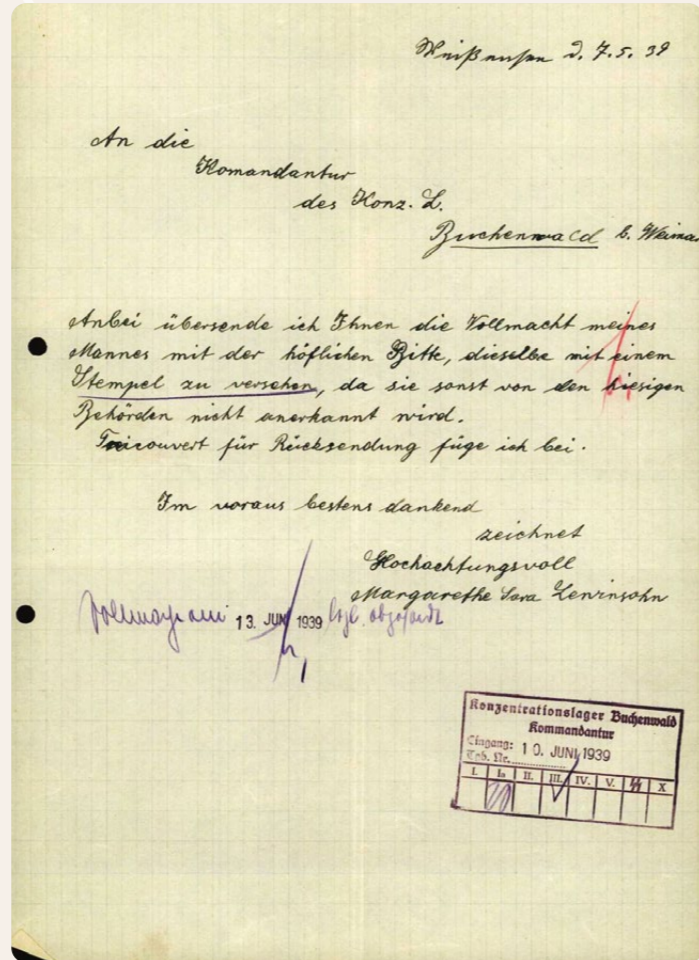 d. 7.5.39
An die
Komandantur
des Konz. L.
Buchenwald b. Weimar
Anbei übersende ich Ihnen die Vollmacht meines
Mannes mit der höflichen Bitte, dieselbe mit einem
Stempel zu versehen, da sie sonst von den hiesigen
Behörden nicht anerkannt wird.
Freicouvert für Rücksendung füge ich bei.
Im voraus bestens dankend
zeichnet
Hochachtungsvoll
Margarethe Sara
Vollmacht am 13. JUNI 1939 abgesandt
Konzentrationslager Buchenwald
Kommandantur
Eingang: 10. JUNI 1939
Tgb. Nr.
I. Ia II. III. IV. V. ᛋᛋ X